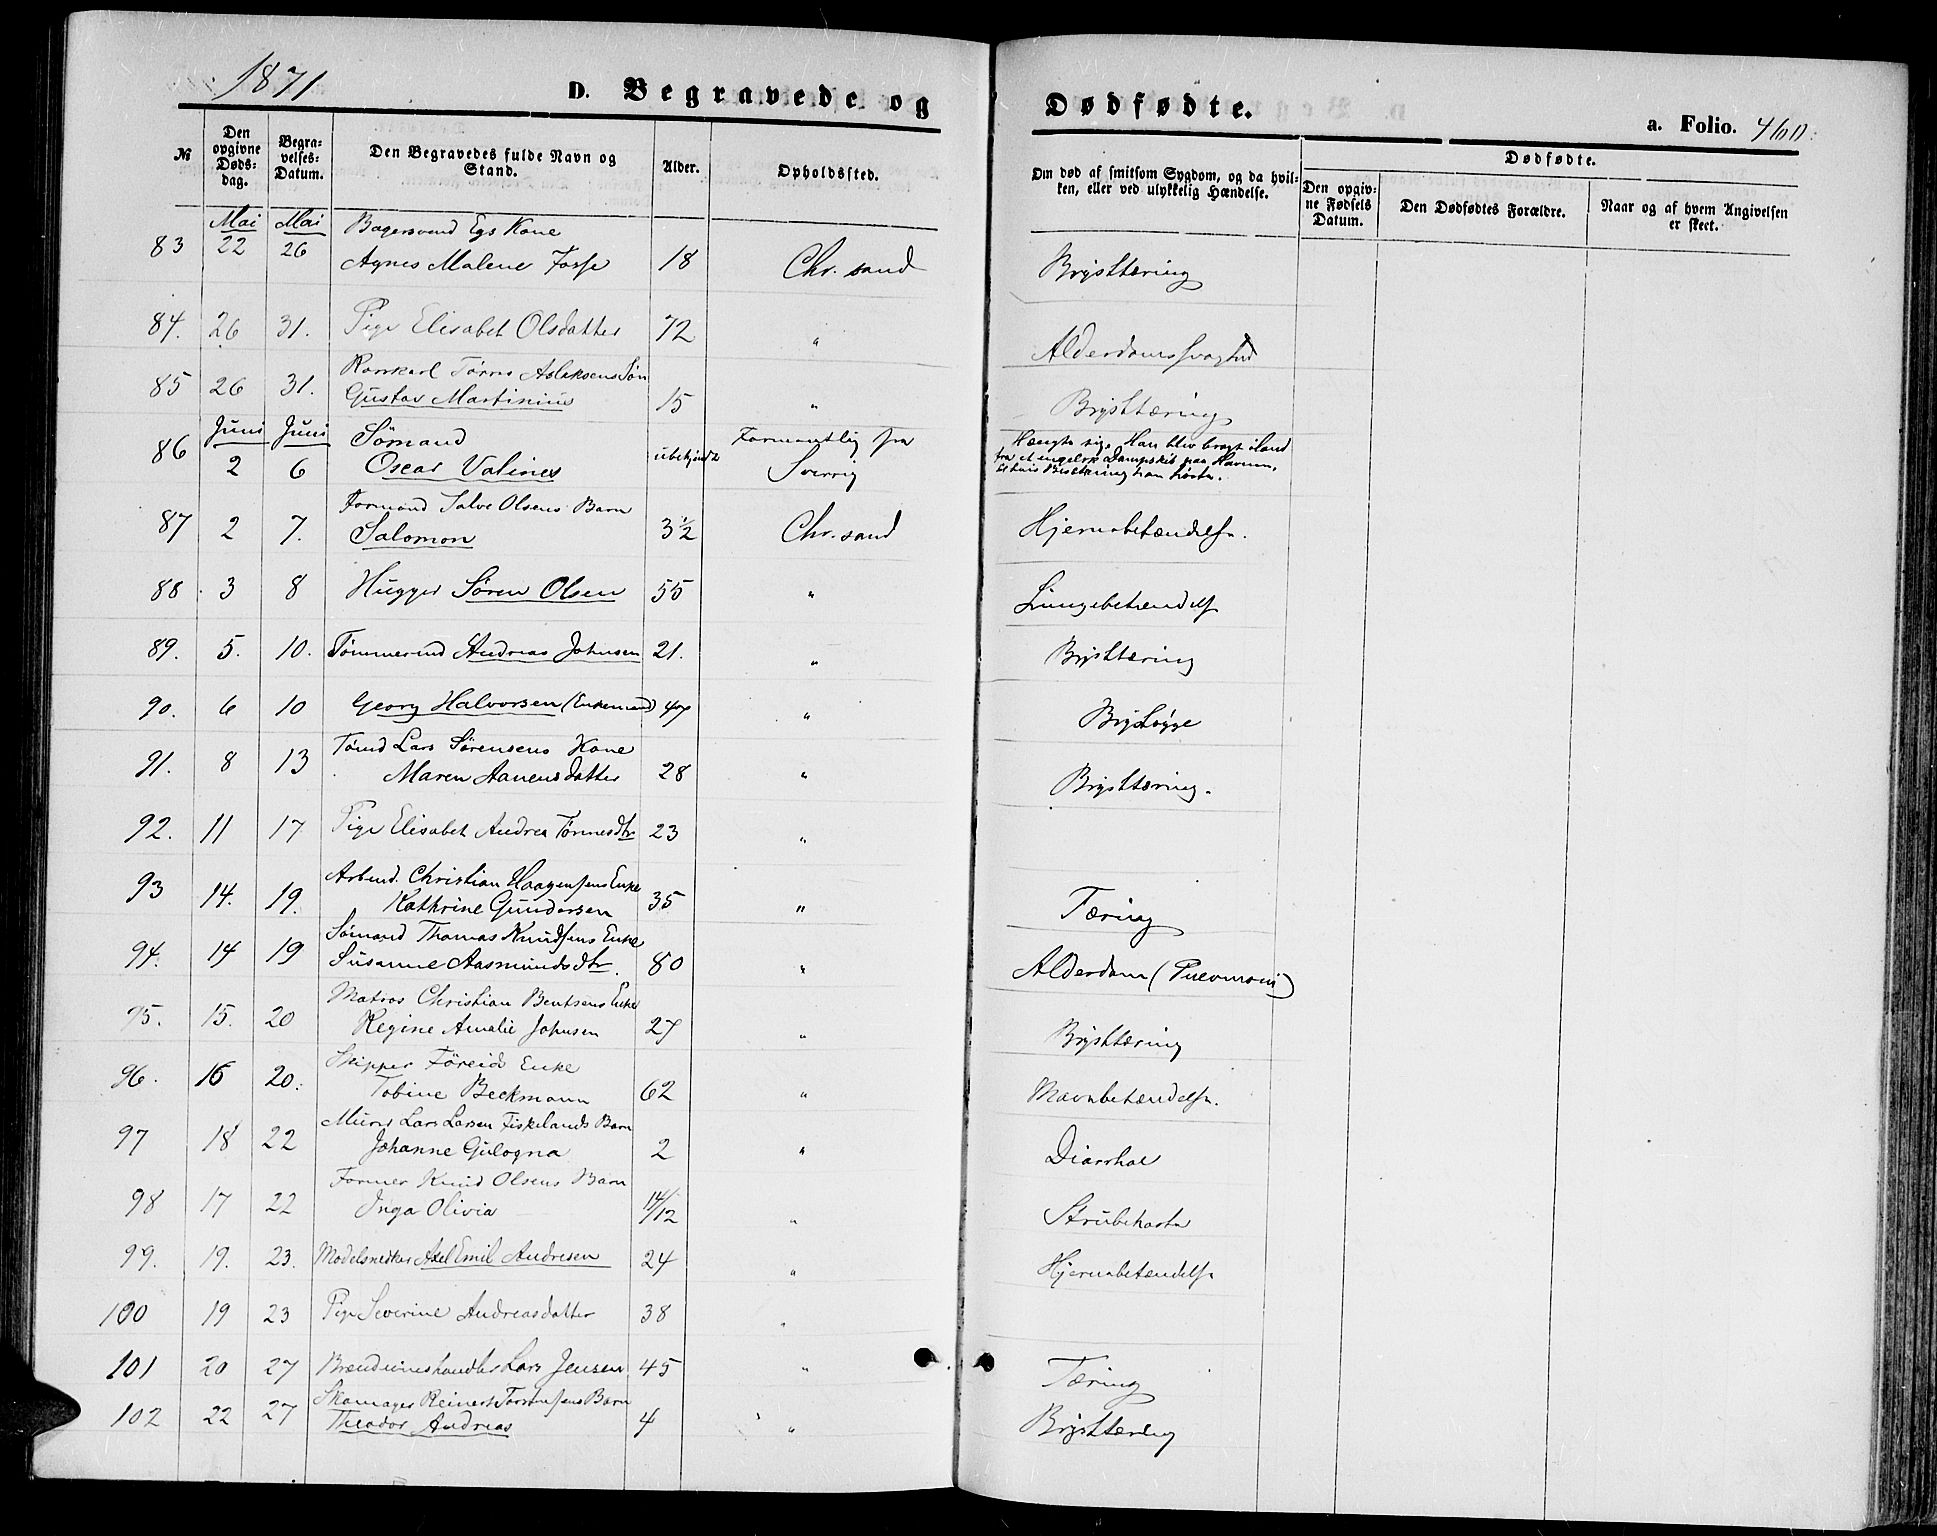 1871
D. Begravede og Dødfødte.
a. Folio. 460.
№ | Den opgivne Døds-dag. | Begra-velses-Datum. | Den Begravedes fulde Navn og Stand. | Alder. | Opholdssted. | Om død af smitsom Sygdom, og da hvil-ken, eller ved ulykkelig Hændelse. | Dødfødte.
Den opgiv-ne Fødsels Datum. | Den Dødfødtes Forældre. | Naar og af hvem Angivelsen er skeet.
Mai Mai Bagersvend Egs Kone
83 22 26 Agnes Malene Fosse 18 Chr. sand Brysttæring
84. 26 31. Pige Elisabet Olsdatter 72 " Alderdomssvaghed
Aslaksens Søn
85 26 31. Gustav Martinius 15 " Brysttæring
Juni Juni Sömand Formentlig fra Hængte sig. Han blev bragt iland
86 2 6 Oscar Valines ubekjendt Sverrig fra et engelsk Dampskib paa Havnen, til hvis Besætning han hørte.
Formand Salve Olsens Barn
87 2 7. Salomon 3½ Chr. sand Hjernebetændelse.
88 3 8 Hugger Søren Olsen 55 " Lungebetændelse
89. 5. 10. Tømmermd Andreas Johnsen 21. " Brysttæring
90. 6 10 Georg Halvorsen (Enkemand) 47 " Brystsyge
Tømd Lars Sørensens Kone
91. 8 13 Maren Aanensdatter 28 " Brysttæring.
92. 11 17 Pige Elisabet Andrea Tønnesdtr 23 "
Arbmd. Christian Haagensens Enke
93 14. 19. Kathrine Gundersen 35 " Tæring
Sømand Thomas Knudsens Enke
94. 14 19 Susanne Aasmundsdtr. 80 " Alderdom (Pneumoni)
Matros Christian Bentsens Enke
95. 15. 20 Regine Amalie Johnsen 27 " Brysttæring
Skipper Föreids Enke
96. 16 20. Tobine Beckmann 62 " Mavebetændelse.
Murer Lars Larsen Fiskelands Barn
97 18 22 Johanne Gulogna 2 " Diarrhae
Former Knud Olsens Barn
98 17 22 Inga Olivia 14/12 " Strubehoste
99. 19. 23. Modelsnedker Axel Emil Andresen 24 " Hjernebetændelse
100 19 23 Pige Severine Andreasdatter 38 "
101 20 27 Brændevinshandler Lars Jensen 45 " Tæring
Skomager Reinert Torstensens Barn
102 22 27 Theodor Andreas 4 " Brysttæring